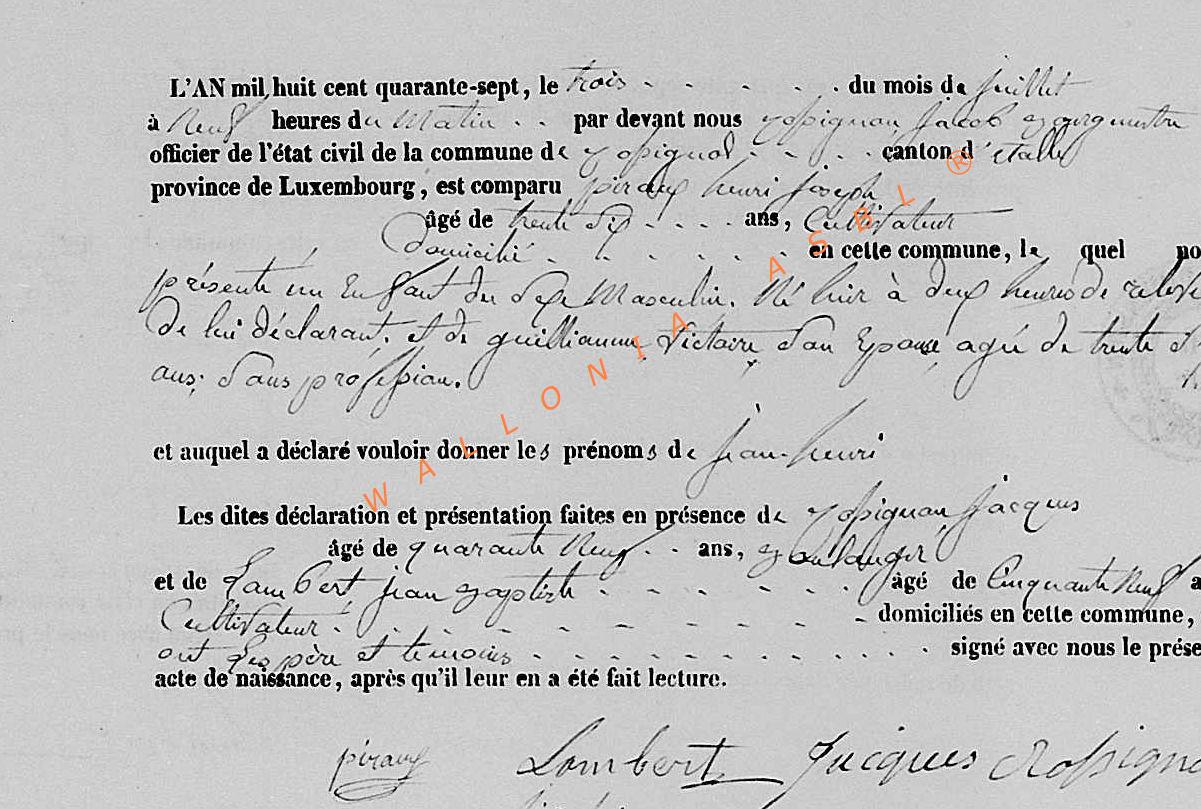 L'AN mil huit cent quarante-sept, le trois du mois de juillet
à Neuf heures du Matin par devant nous Rossignon Jacob Bourgmestre
officier de l'état civil de la commune de canton d'étalle
province de Luxembourg, est comparu piraux henri joseph
âgé de trente six ans, Cultivateur
domicilié en cette commune, le quel no
présenté un Enfant du Sexe Masculin. Né hier à deux heures de
de lui déclarant, et de guilliaume Victoire Son Epouse agée de trente
ans, Sans profession.
et auquel a déclaré vouloir donner les prénoms de jean henri
Les dites déclaration et présentation faites en présence de Rossignon Jacques
âgé de quarante Neuf ans, Boulanger
et de Lambert jean Baptiste âgé de Cinquante Neuf a
Cultivateur domiciliés en cette commune,
ont Les père et témoins signé avec nous le prése
acte de naissance, après qu'il leur en a été fait lecture.
piraux Lambert Jacques Rossigno
WALLONIA ASBL ®